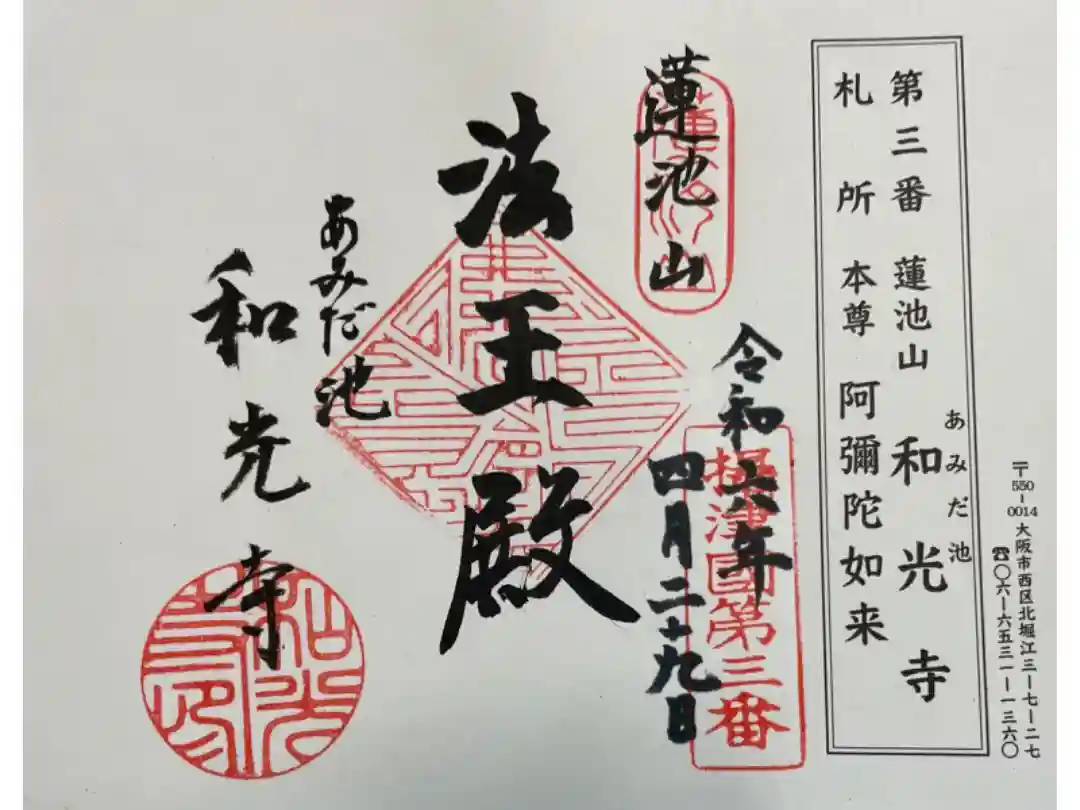 〒550-0014 大阪市西区北堀江三ー七ー二七
☎〇六ー六五三一ー一三六〇
あみだ池
第三番 蓮池山 和光寺
札所 本尊 阿彌陀如来
蓮池山
令和六年
四月二十九日
摂津國第三番
法王殿
あみだ池
和光寺